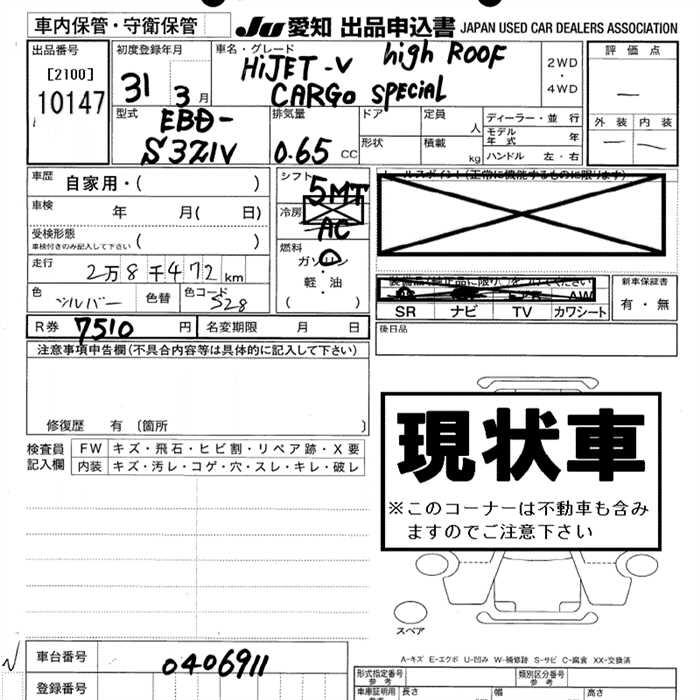 車内保管・守衛保管 JU 愛知 出品申込書 JAPAN USED CAR DEALERS ASSOCIATION
出品番号 初度登録年月 車名・グレード 評価点
[2100] 31 3月 HiJET-V high ROOF 2WD・4WD
10147 CARGO SPECIAL —
型式 排気量 ドア 定員 人 ディーラー・並行 外装 内装
EBD- モデル年式 年 — —
S321V 0.65 CC 形状 積載 kg ハンドル 左・右
車歴 自家用・( ) シフト 5MT
車検 年 月( 日) 冷房 AC
受検形態 ( )
車検付きのみ記入して下さい
燃料
走行 2万8千472km ガソリン
軽・油
( )
色 シルバー 色替 色コード S28 新車保証書
有・無
SR ナビ TV カワシート
R券 7510円 名変期限 月 日 後日品
注意事項申告欄(不具合内容等は具体的に記入して下さい)
修復歴 有〔箇所 〕
現状車
※このコーナーは不動車も含み
ますのでご注意下さい
検査員記入欄 FW キズ・飛石・ヒビ割・リペア跡・X要
内装 キズ・汚レ・コゲ・穴・スレ・キレ・破レ
スペア
A-キズ E-エクボ U-凹み W-補修跡 S-サビ C-腐食 XX-交換済
車台番号 0406911 形式指定番号 参考 類別区分番号 参考
登録番号 車庫証明用参考 長さ 幅 高さ